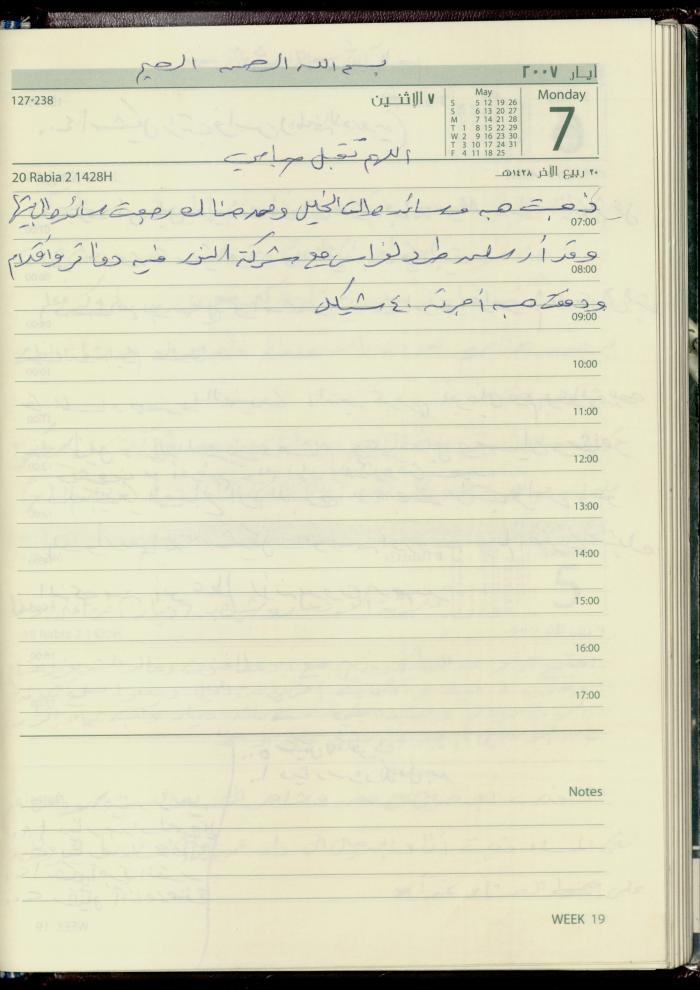 بسم الله الرحمن الرحيم
أيار ٢٠٠٧
127-238
٧ الاثنين
May
S 5 12 19 26
S 6 13 20 27
M 7 14 21 28
T 1 8 15 22 29
W 2 9 16 23 30
T 3 10 17 24 31
F 4 11 18 25
Monday
7
اللهم تقبل
20 Rabia 2 1428H
٢٠ ربيع الآخر ١٤٢٨هـ
ذهبت هبه وسائد الخليل ومن هناك رجعت سائد
07:00
وقد أرسلت طرد لفراس مع شركة النور فيه دفاتر وأقلام
08:00
ودفعت هبه أجرته ٤٠ شيكل
09:00
10:00
11:00
12:00
13:00
14:00
15:00
16:00
17:00
Notes
WEEK 19